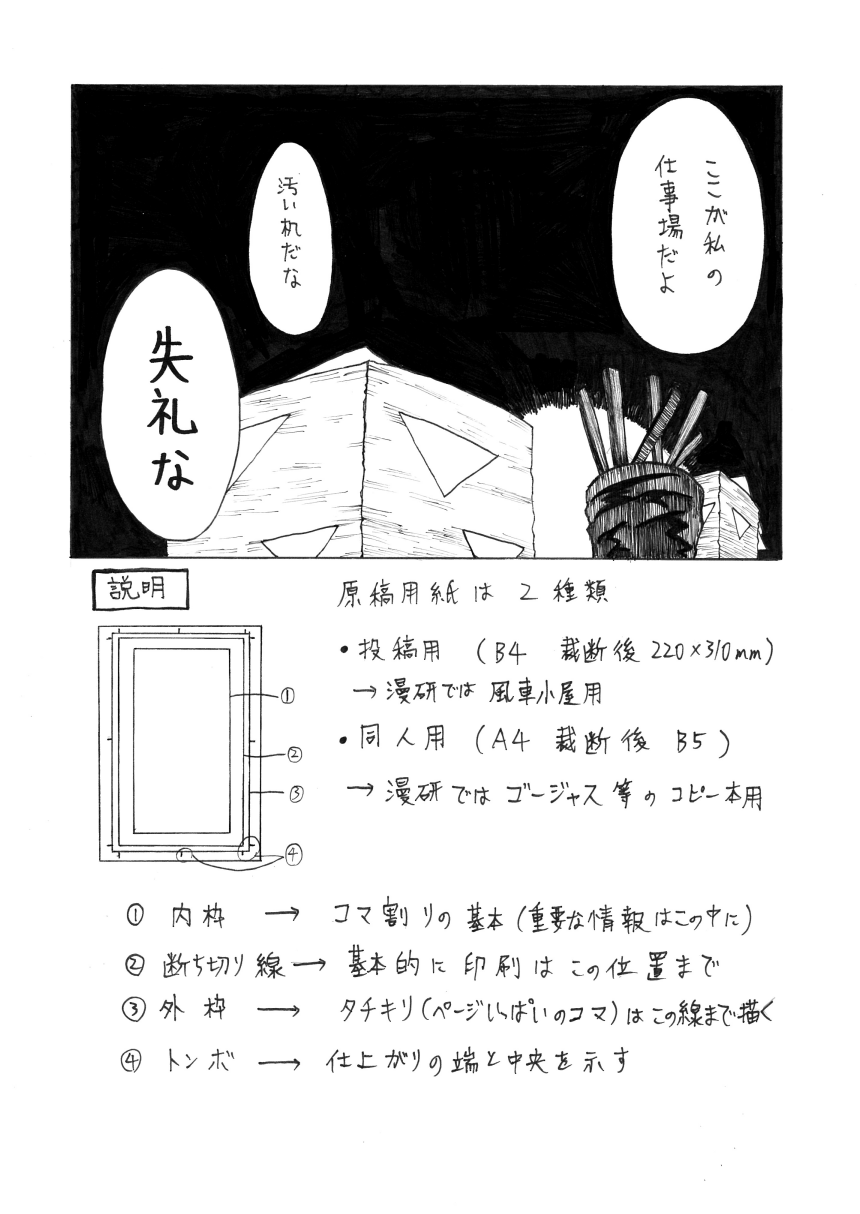 ここが私の
仕事場だよ
汚い机だな
失礼な
説明
原稿用紙は2種類
・投稿用 (B4 裁断後 220×310mm)
→漫研では 風車小屋用
・同人用 (A4 裁断後 B5)
→漫研では ゴージャス等の コピー本用
①
②
③
④
① 内枠 → コマ割りの基本(重要な情報はこの中に)
② 断ち切り線→ 基本的に印刷はこの位置まで
③ 外枠 → タチキリ(ページいっぱいのコマ)はこの線まで描く
④ トンボ → 仕上がりの端と中央を示す